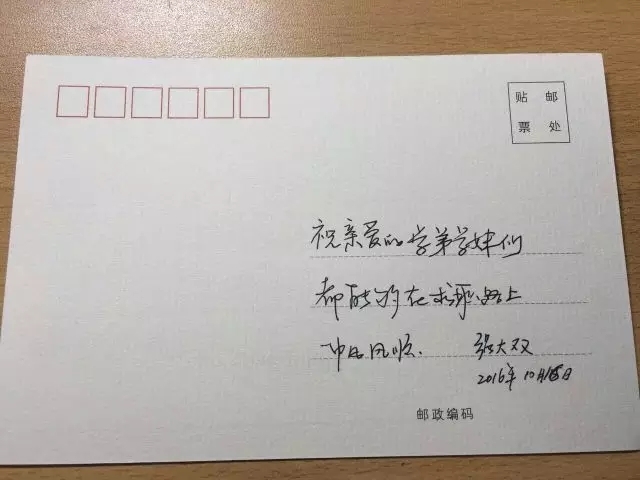 贴 邮
票 处
祝亲爱的学弟学妹们
都能够在求职路上
一帆风顺. 张大双
2016年10月15日
邮政编码